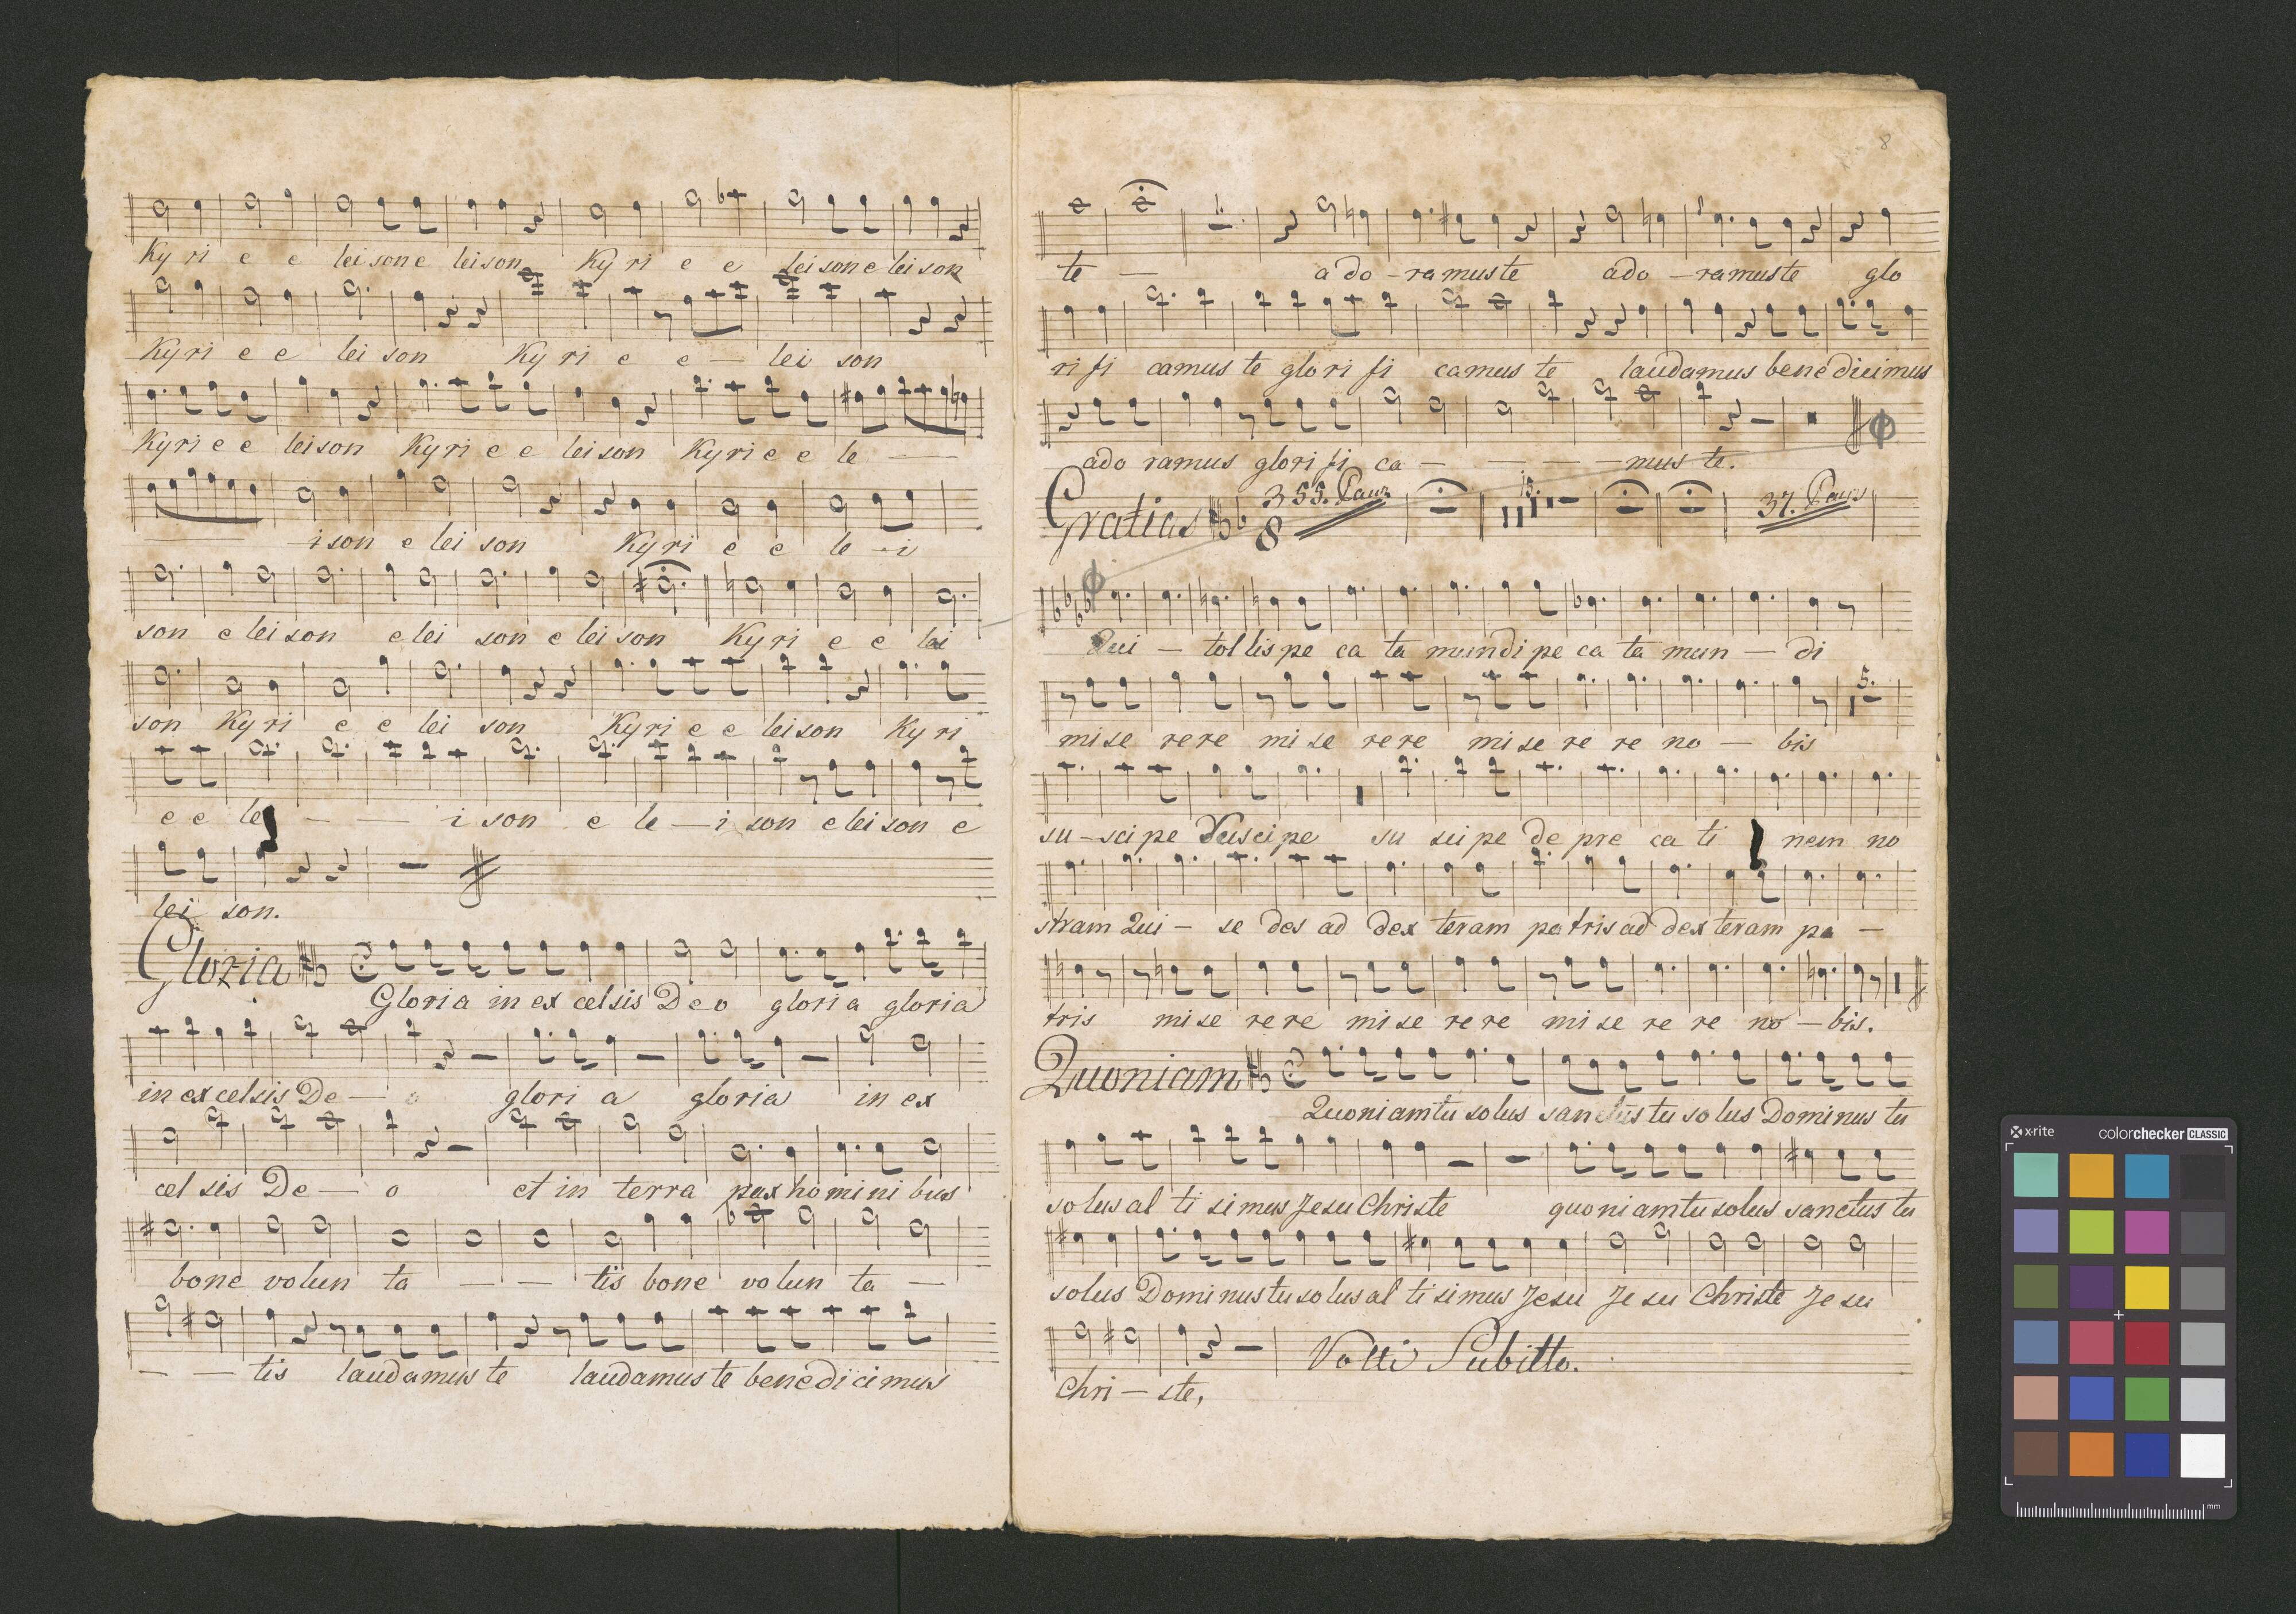 Ky ri e e lei son e lei son Ky ri e e lei son e lei son
Ky ri e e lei son Ky ri e e — lei son
Ky ri e e lei son Ky ri e e lei son Ky ri e e le —
— i son e lei son Ky ri e e le - i
son e lei son e lei son e lei son Ky ri e e lei
son Ky ri e e lei son Ky ri e e lei son Ky ri
e e le — — i son e le — i son e lei son e
lei son.
Gloria
Gloria in ex celsis Deo gloria gloria
in ex celsis De — o glori a gloria in ex
cel sis De — o et in terra pax ho mi ni bus
bone volun ta — — tis bone volun ta —
— — tis laudamus te laudamus te benedicimus
8
te — a do - ramus te ado — ramus te glo
ri fi camus te glo ri fi camus te laudamus benedicimus
ado ramus glori fi ca — — — — mus te.
Gratias 3 8 55. Paus 13. 37. Paus
Qui — tol lis pe ca ta mundi pe ca ta mun — di
5.
mi se rere mi se rere mi se re re no — bis
su — sci pe Suscipe su sci pe de pre ca ti nem no
stram Qui — se des ad dex teram patris ad dex teram pa —
tris mi se re re mi se re re mi se re re no — bis.
Quoniam
Quoniam tu solus sanctus tu solus Dominus tu
solus al ti simus Jesu Christe quoniam tu solus sanctus tu
solus Dominus tu solus al ti simus Jesu Je su Christe Je su
Volti Subitto.
Chri — ste,
x-rite colorchecker CLASSIC
mm